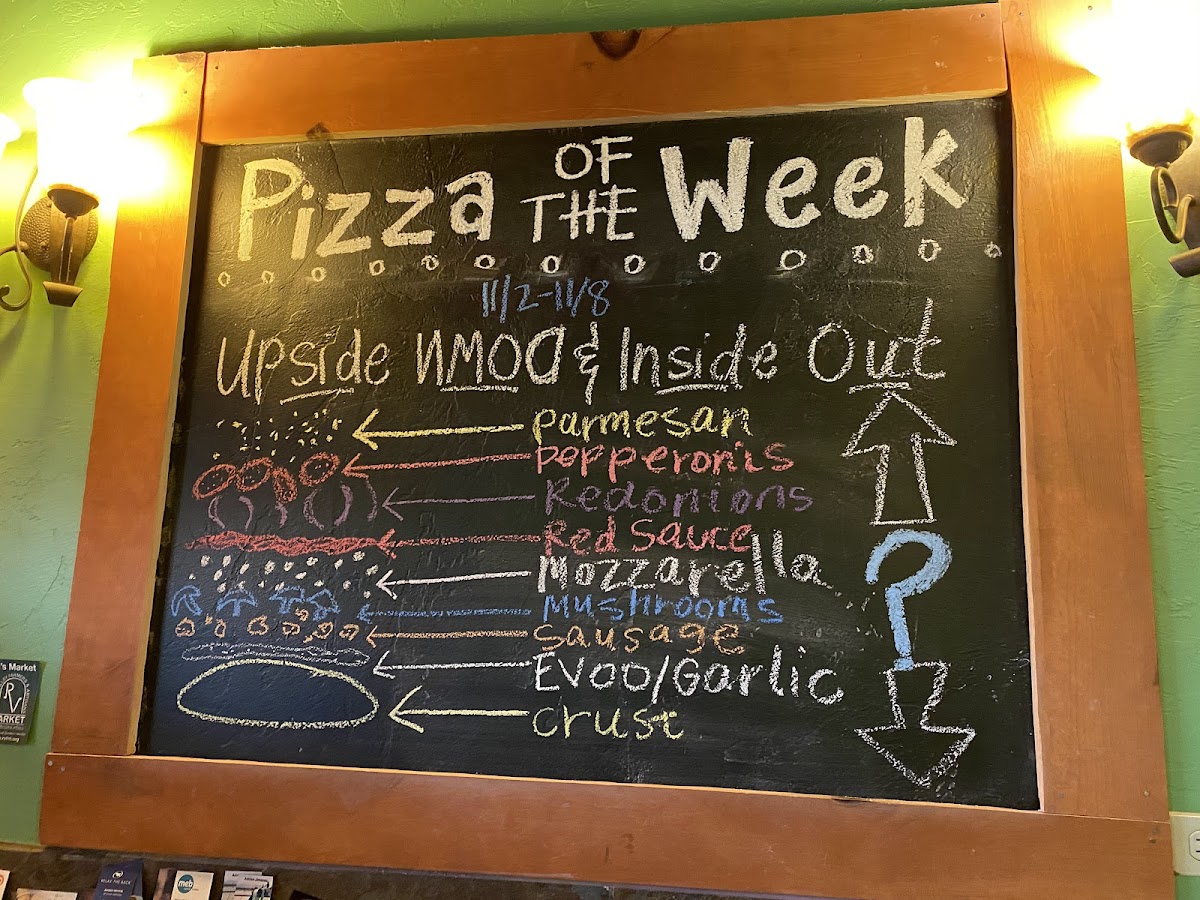 Pizza OF THE Week
11/2-11/8
Upside NMOD & Inside Out
Parmesan
Pepperonis
Red onions
Red Sauce
Mozzarella
Mushrooms
Sausage
EVOO/Garlic
Crust
?
's Market
RV
ARKET
RELAX THE BACK
meb